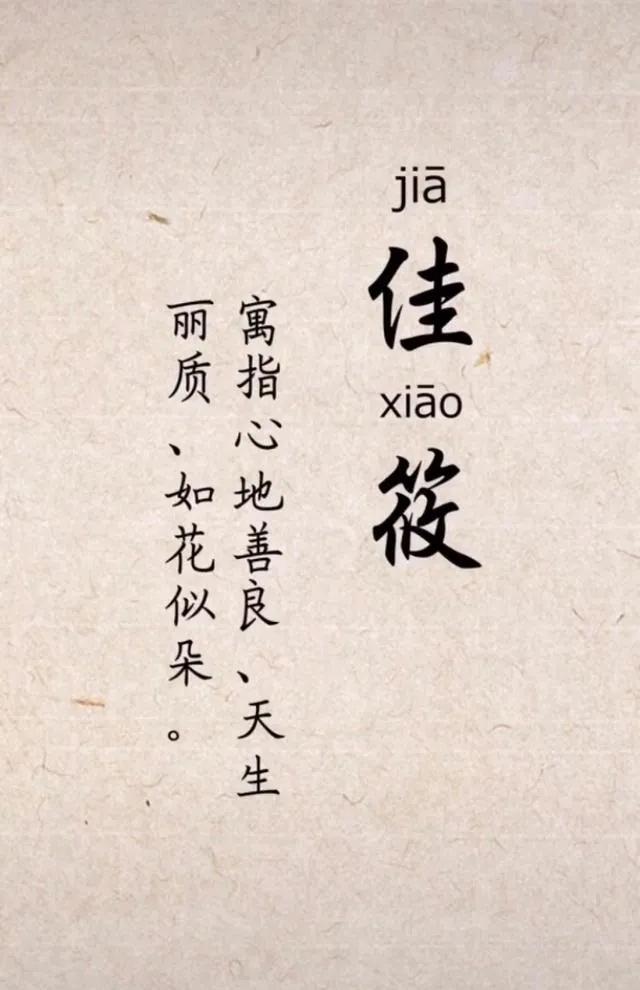 jiā
佳
xiāo
筱
寓指心地善良、天生
丽质、如花似朵。